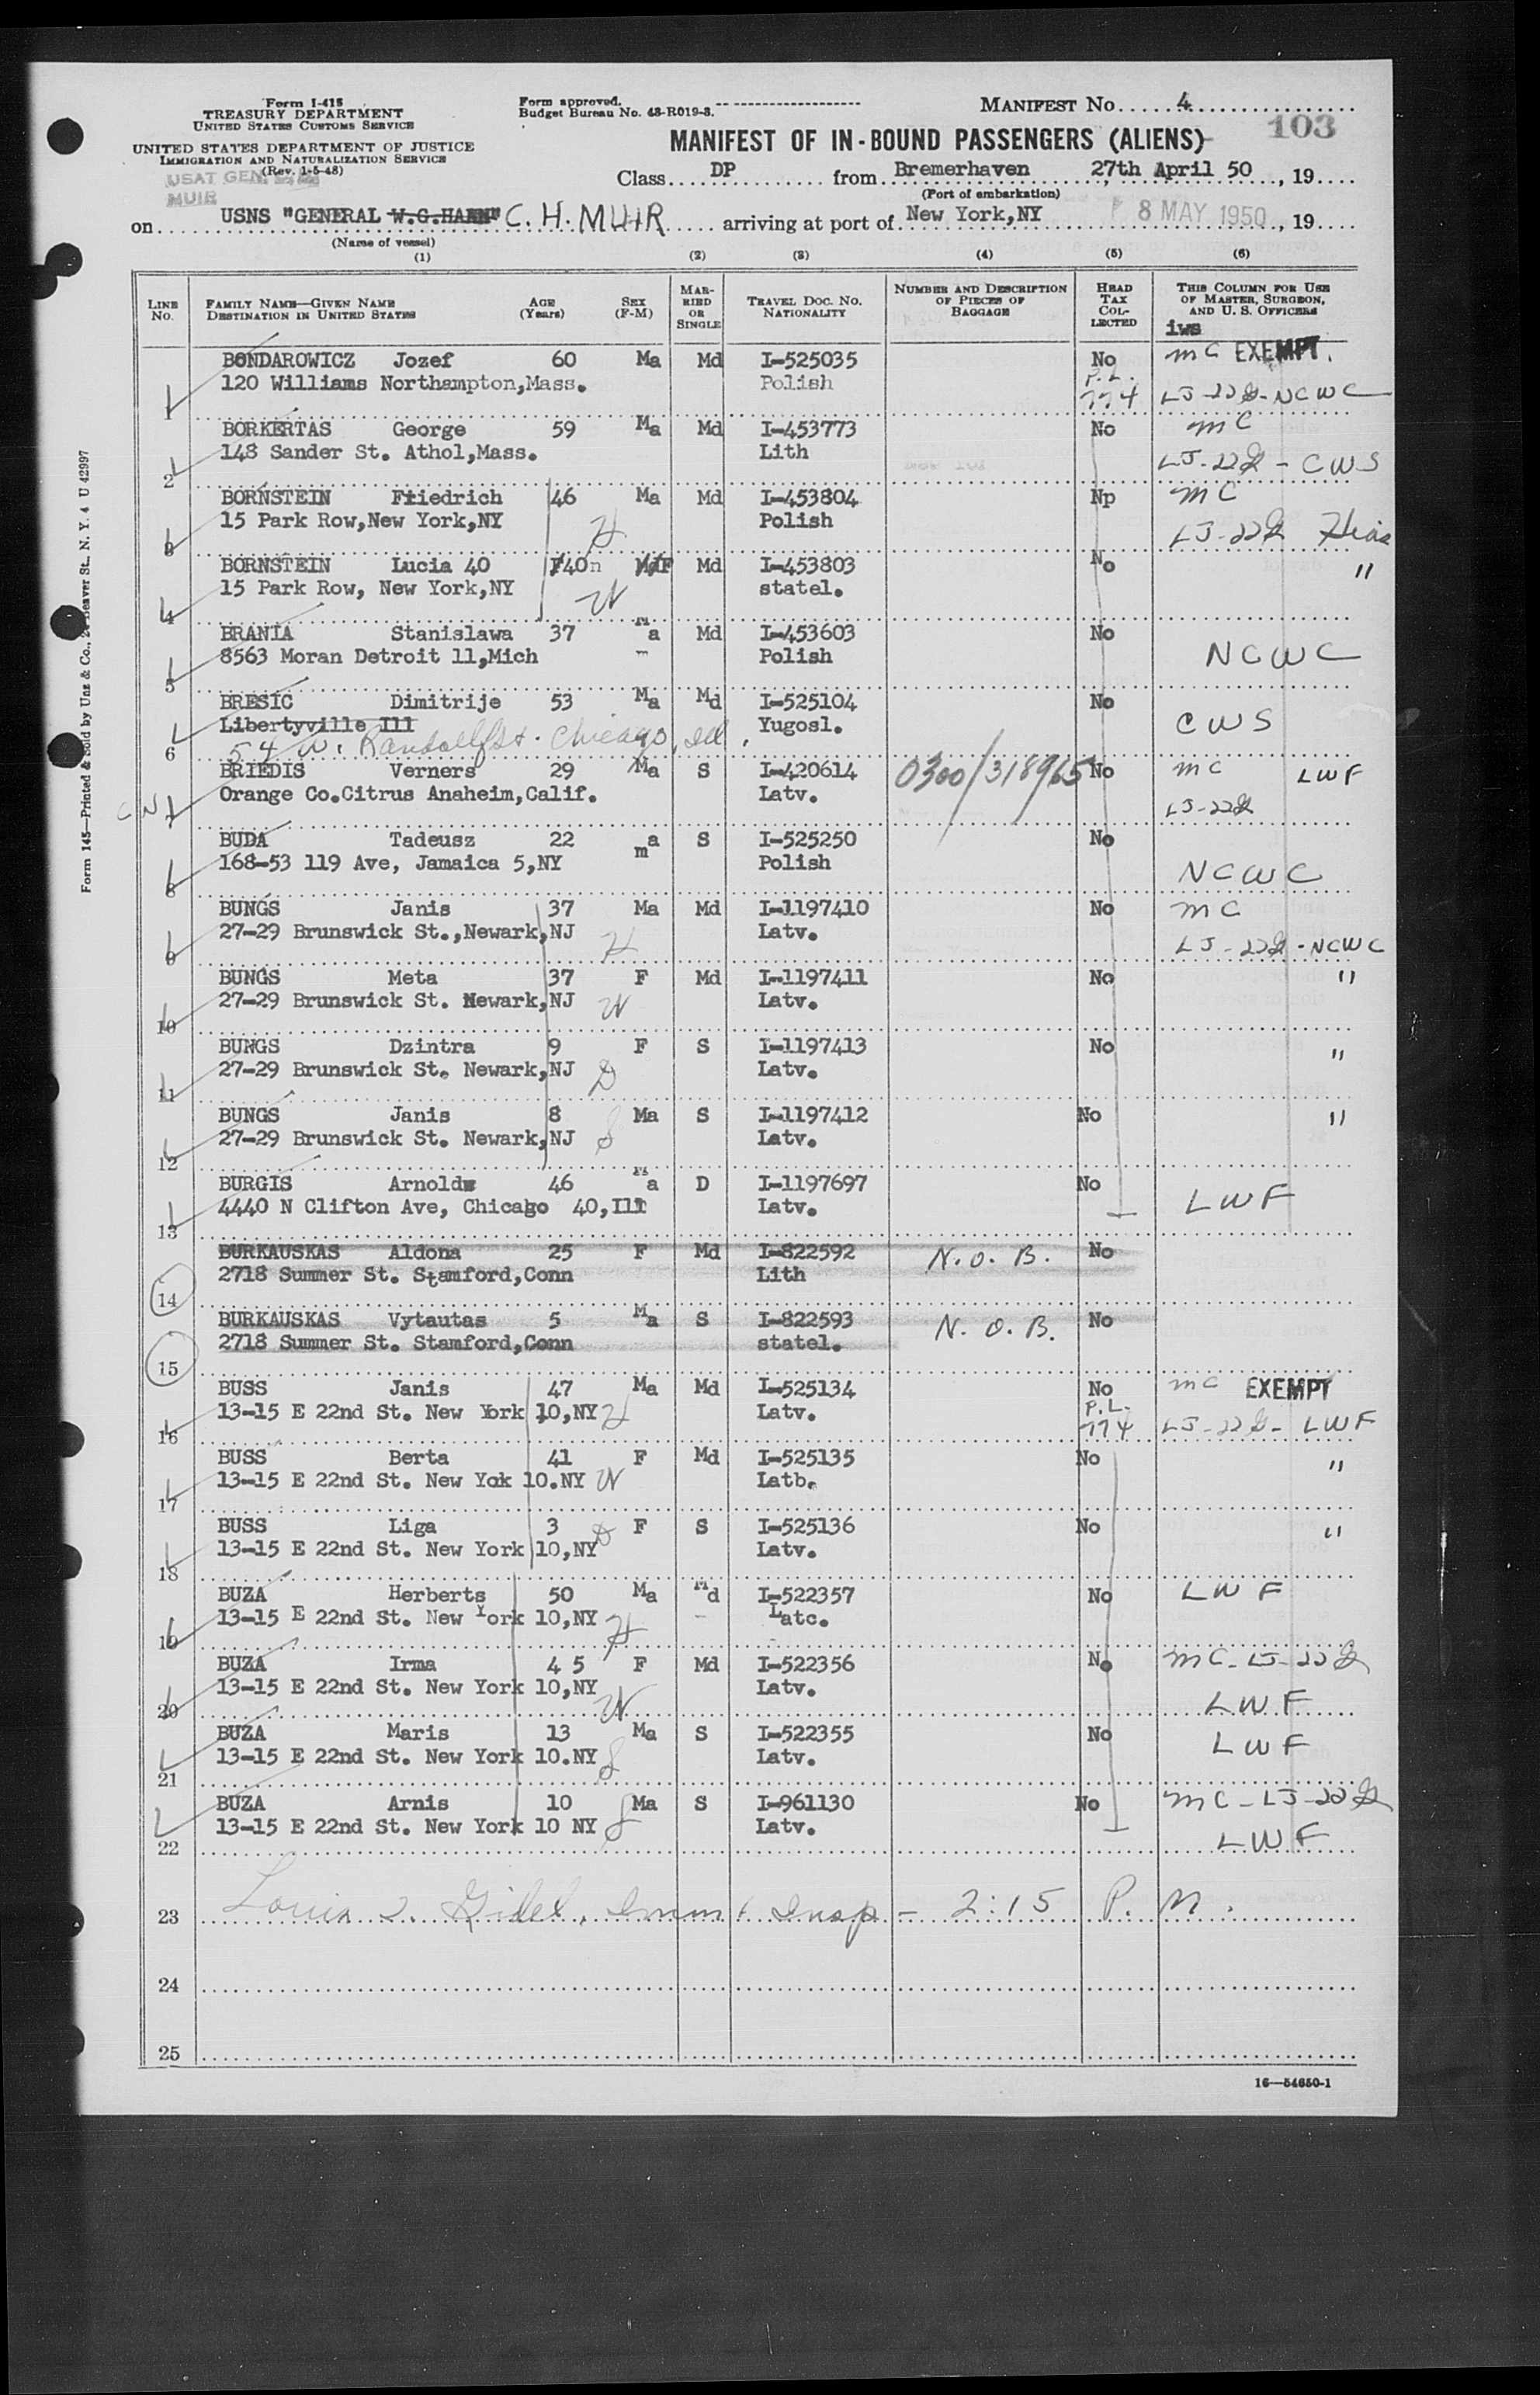 Form I-415
TREASURY DEPARTMENT
UNITED STATES CUSTOMS SERVICE
UNITED STATES DEPARTMENT OF JUSTICE
IMMIGRATION AND NATURALIZATION SERVICE
(Rev. 1-5-48)
Form approved.
Budget Bureau No. 43-R019-3.
MANIFEST No. 4
103
MANIFEST OF IN-BOUND PASSENGERS (ALIENS)
Class DP from Bremerhaven 27th April 50, 19
(Port of embarkation)
USAT GEN.
MUIR
on USNS "GENERAL W.G.HAAN" C. H. MUIR arriving at port of New York,NY 8 MAY 1950, 19
(Name of vessel)
(1) (2) (3) (4) (5) (6)
LINE No. FAMILY NAME—GIVEN NAME DESTINATION IN UNITED STATES AGE (Years) SEX (F-M) MARRIED OR SINGLE TRAVEL DOC. NO. NATIONALITY NUMBER AND DESCRIPTION OF PIECES OF BAGGAGE HEAD TAX COLLECTED THIS COLUMN FOR USE OF MASTER, SURGEON, AND U. S. OFFICERS
iws
BONDAROWICZ Jozef 60 Ma Md I-525035 No mc EXEMPT.
1 120 Williams Northampton,Mass. Polish P.L. 774 LJ-22 - NCWC
BORKERTAS George 59 Ma Md I-453773 No mc
2 148 Sander St. Athol,Mass. Lith LJ-22 - CWS
BORNSTEIN Friedrich 46 Ma Md I-453804 Np mc
3 15 Park Row,New York,NY H Polish LJ-22 Hias
BORNSTEIN Lucia 40 F40n MdF Md I-453803 No "
4 15 Park Row, New York,NY W statel.
BRANIA Stanislawa 37 Ma Md I-453603 No
5 8563 Moran Detroit 11,Mich Polish NCWC
BRESIC Dimitrije 53 Ma Md I-525104 No
Libertyville Ill Yugosl. CWS
6 54 W. Randolf St. Chicago, Ill.
BRIEDIS Verners 29 Ma S I-420614 0300/318965 No mc LWF
7 Orange Co.Citrus Anaheim,Calif. Latv. LJ-22
BUDA Tadeusz 22 ma S I-525250 No
8 168-53 119 Ave, Jamaica 5,NY Polish NCWC
BUNGS Janis 37 Ma Md I-1197410 No mc
9 27-29 Brunswick St.,Newark,NJ H Latv. LJ-22 - NCWC
BUNGS Meta 37 F Md I-1197411 No "
10 27-29 Brunswick St. Newark,NJ W Latv.
BUNGS Dzintra 9 F S I-1197413 No "
11 27-29 Brunswick St. Newark,NJ D Latv.
BUNGS Janis 8 Ma S I-1197412 No "
12 27-29 Brunswick St. Newark,NJ S Latv.
BURGIS Arnolds 46 Ma D I-1197697 No
13 4440 N Clifton Ave, Chicago 40,Ill Latv. LWF
BURKAUSKAS Aldona 25 F Md I-822592 N.O.B. No
14 2718 Summer St. Stamford,Conn Lith
BURKAUSKAS Vytautas 5 Ma S I-822593 N.O.B. No
15 2718 Summer St. Stamford,Conn statel.
BUSS Janis 47 Ma Md I-525134 No mc EXEMPT
16 13-15 E 22nd St. New York 10,NY H Latv. P.L. 774 LJ-22 - LWF
BUSS Berta 41 F Md I-525135 No "
17 13-15 E 22nd St. New Yok 10.NY W Latb.
BUSS Liga 3 D F S I-525136 No "
18 13-15 E 22nd St. New York 10,NY Latv.
BUZA Herberts 50 Ma Md I-522357 No LWF
19 13-15 E 22nd St. New York 10,NY H Latc.
BUZA Irma 4 5 F Md I-522356 No mc-LJ-22
20 13-15 E 22nd St. New York 10,NY W Latv. LWF
BUZA Maris 13 Ma S I-522355 No LWF
21 13-15 E 22nd St. New York 10.NY S Latv.
BUZA Arnis 10 Ma S I-961130 No mc-LJ-22
22 13-15 E 22nd St. New York 10 NY S Latv. LWF
23 Immt Insp - 2:15 P. M.
24
25
16—54650-1
Form 145—Printed & Sold by Unz & Co., Beaver St., N. Y. 4 U 42997